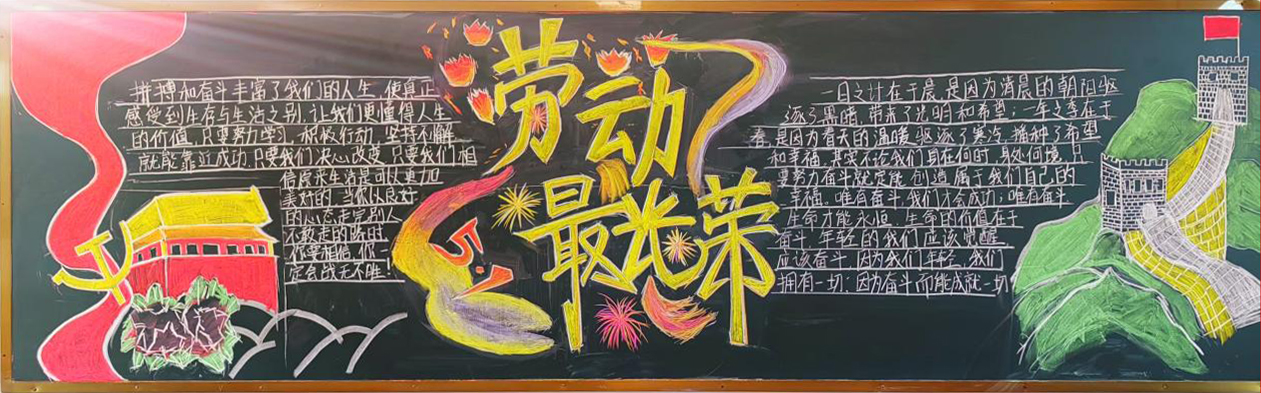 劳动
最光荣
5.1
拼搏和奋斗丰富了我们的人生,使真正
感受到生存与生活之别,让我们更懂得人生
的价值,只要努力学习,积极行动,坚持到
就能靠近成功,只要我们决心改变,只要我们相
信晨求生活是可以更加
美好的,当你以良好
的心态走完别人
不敢走的路时
你要相信,你
定会战无不胜!
一日之计在于晨,是因为清晨的朝阳驱
逐了黑暗,带来了光明和希望;一年之季在于
春,是因为春天的温暖驱逐了寒冷,播种了希望
和幸福,其实不论我们身在何时,身处何境,只
要努力奋斗就定能创造属于我们自己的
幸福。唯有奋斗,我们才会成功;唯有奋斗
生命才能永恒。生命的价值在于
奋斗,年轻的我们应该觉醒
应该奋斗,因为我们年轻,我们
拥有一切;因为奋斗而能成就一切